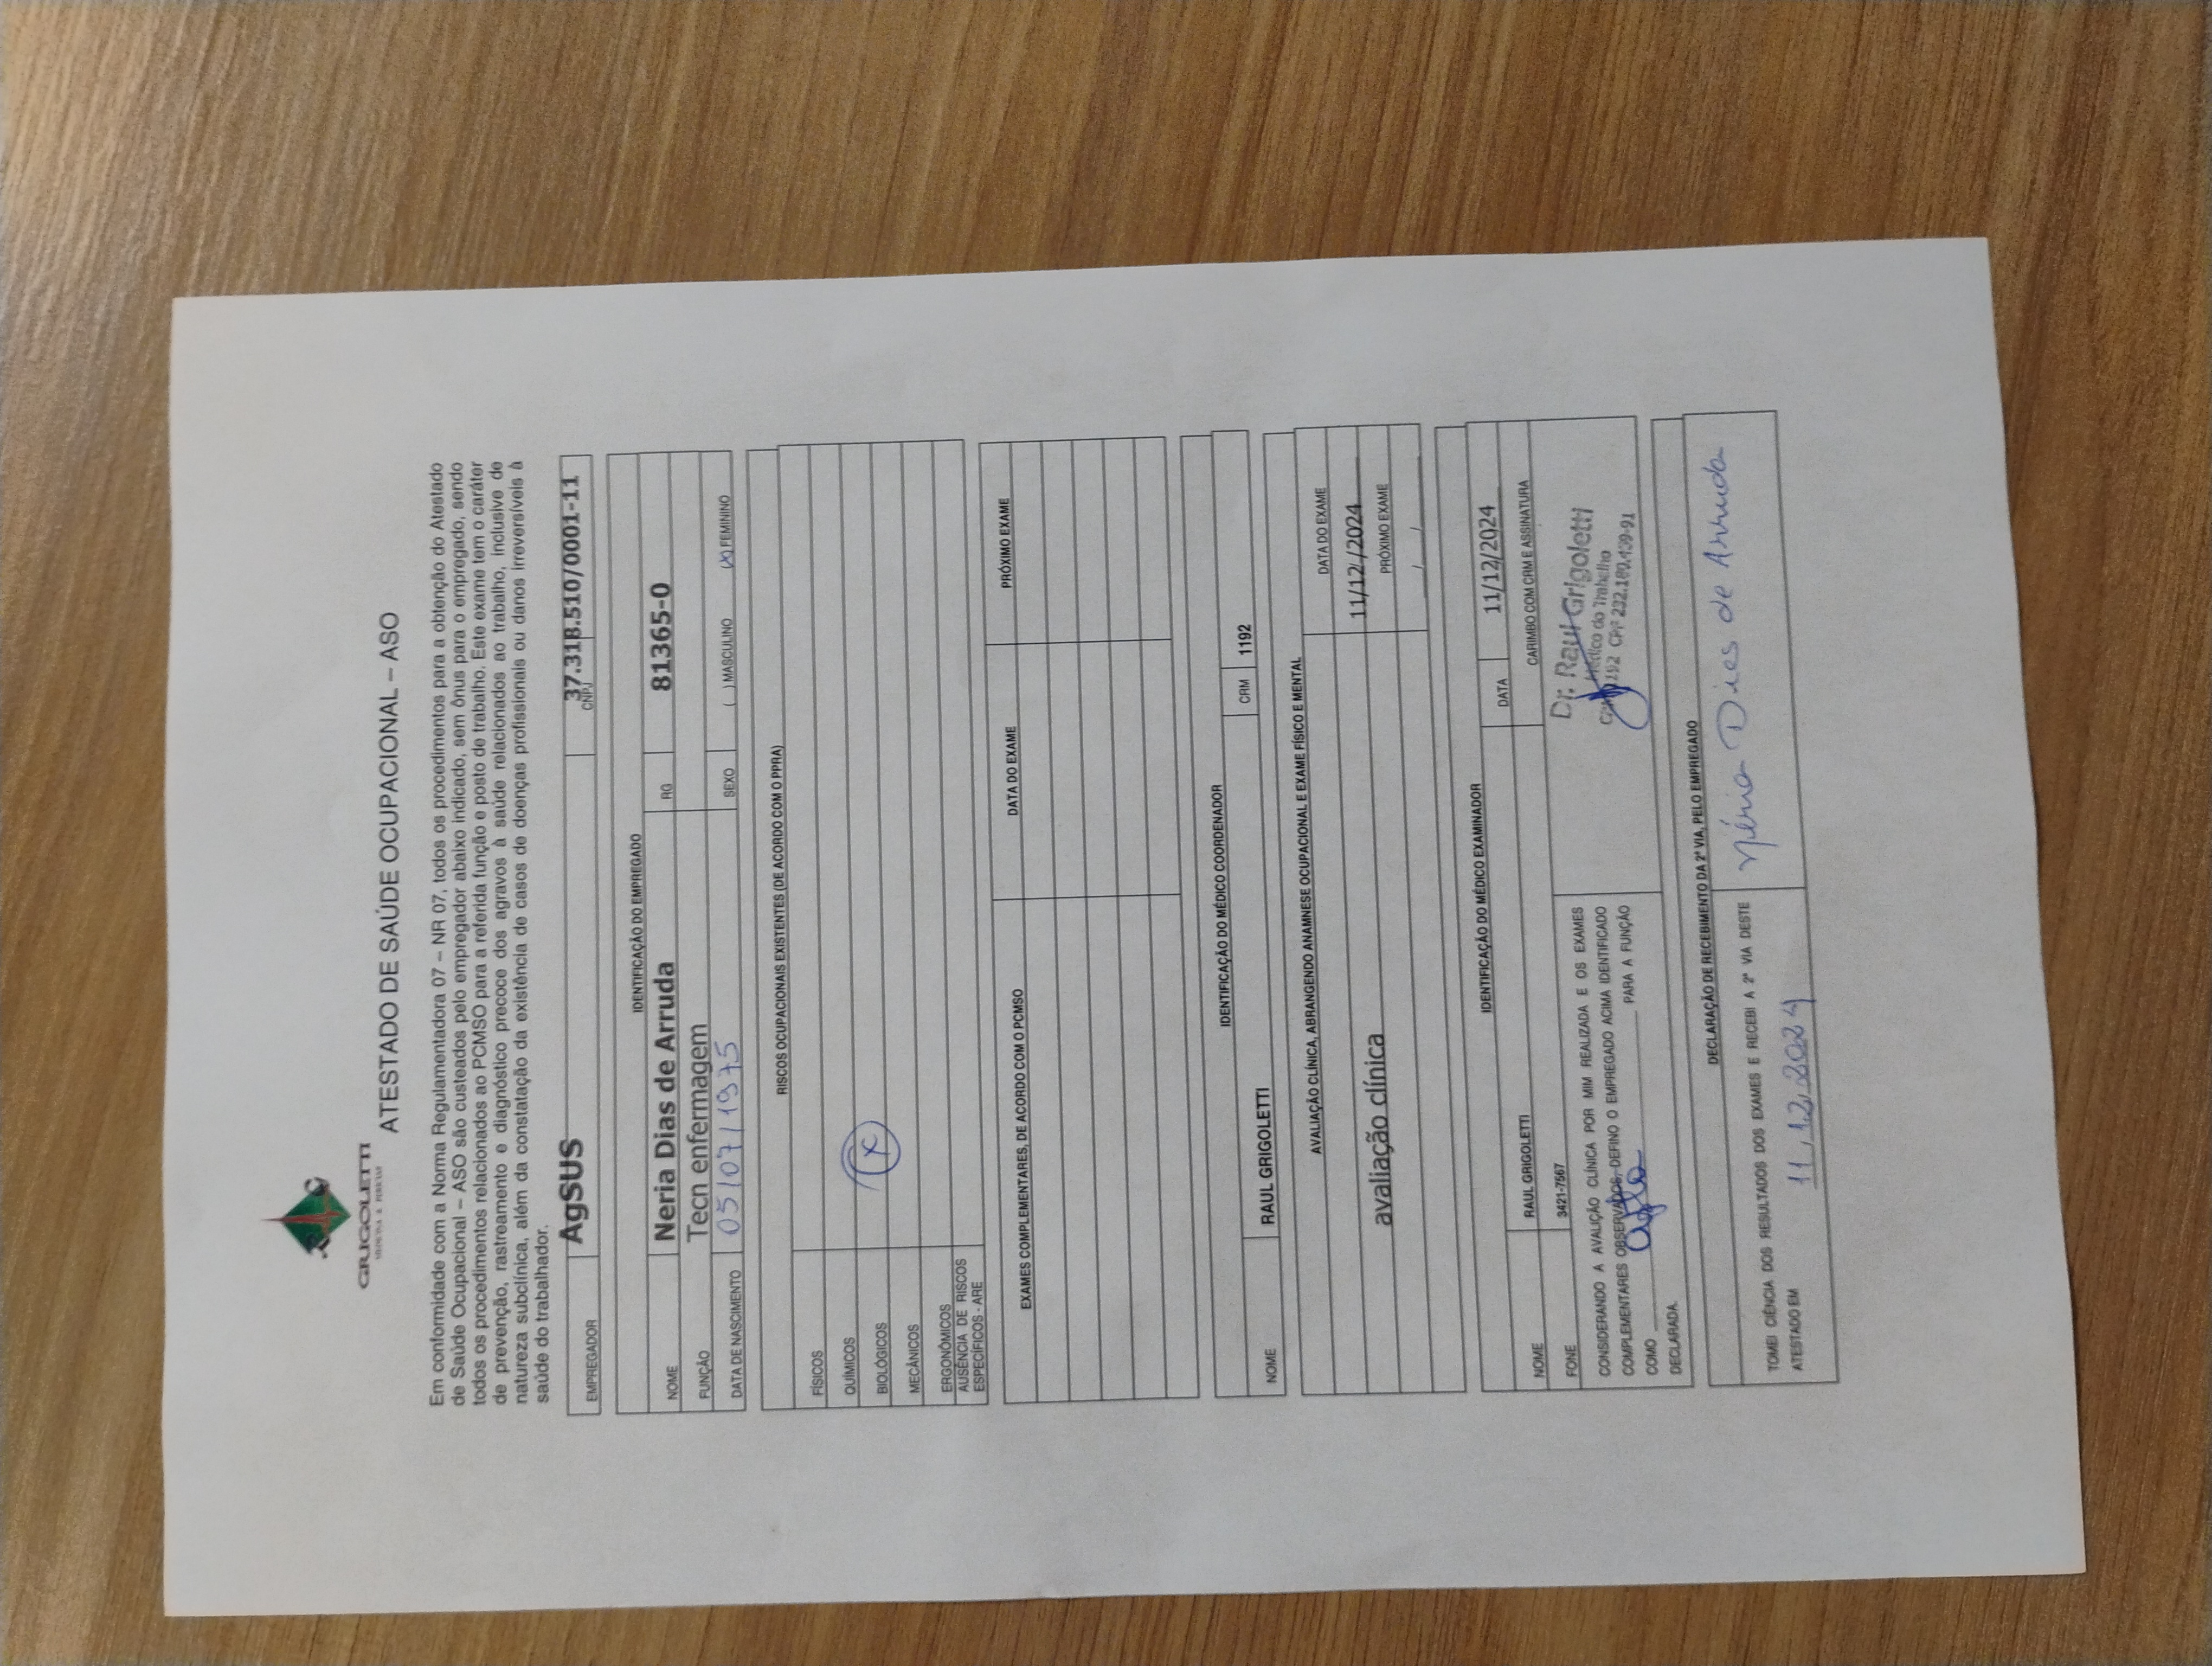 GRIGOLETTI
MEDICINA & PERÍCIAS
ATESTADO DE SAÚDE OCUPACIONAL – ASO
Em conformidade com a Norma Regulamentadora 07 – NR 07, todos os procedimentos para a obtenção do Atestado
de Saúde Ocupacional – ASO são custeados pelo empregador abaixo indicado, sem ônus para o empregado, sendo
todos os procedimentos relacionados ao PCMSO para a referida função e posto de trabalho. Este exame tem o caráter
de prevenção, rastreamento e diagnóstico precoce dos agravos à saúde relacionados ao trabalho, inclusive de
natureza subclínica, além da constatação da existência de casos de doenças profissionais ou danos irreversíveis à
saúde do trabalhador.
EMPREGADOR AgSUS CNPJ 37.318.510/0001-11
IDENTIFICAÇÃO DO EMPREGADO
NOME Neria Dias de Arruda RG 81365-0
FUNÇÃO Tecn enfermagem
DATA DE NASCIMENTO 05/07/1975 SEXO ( ) MASCULINO (X) FEMININO
RISCOS OCUPACIONAIS EXISTENTES (DE ACORDO COM O PPRA)
FÍSICOS
QUÍMICOS
BIOLÓGICOS X
MECÂNICOS
ERGONÔMICOS
AUSÊNCIA DE RISCOS
ESPECÍFICOS - ARE
EXAMES COMPLEMENTARES, DE ACORDO COM O PCMSO DATA DO EXAME PRÓXIMO EXAME
IDENTIFICAÇÃO DO MÉDICO COORDENADOR
NOME RAUL GRIGOLETTI CRM 1192
AVALIAÇÃO CLÍNICA, ABRANGENDO ANAMNESE OCUPACIONAL E EXAME FÍSICO E MENTAL
DATA DO EXAME
avaliação clínica 11/12/2024
PRÓXIMO EXAME
__/__/____
IDENTIFICAÇÃO DO MÉDICO EXAMINADOR
NOME RAUL GRIGOLETTI DATA 11/12/2024
FONE 3421-7567 CARIMBO COM CRM E ASSINATURA
CONSIDERANDO A AVALIÇÃO CLÍNICA POR MIM REALIZADA E OS EXAMES
COMPLEMENTARES OBSERVADOS, DEFINO O EMPREGADO ACIMA IDENTIFICADO
COMO apta PARA A FUNÇÃO
DECLARADA.
Dr. Raul Grigoletti
Médico do Trabalho
CPF 232.189.439-91
DECLARAÇÃO DE RECEBIMENTO DA 2ª VIA, PELO EMPREGADO
TOMEI CIÊNCIA DOS RESULTADOS DOS EXAMES E RECEBI A 2ª VIA DESTE
ATESTADO EM 11/12/2024
Néria Dias de Arruda